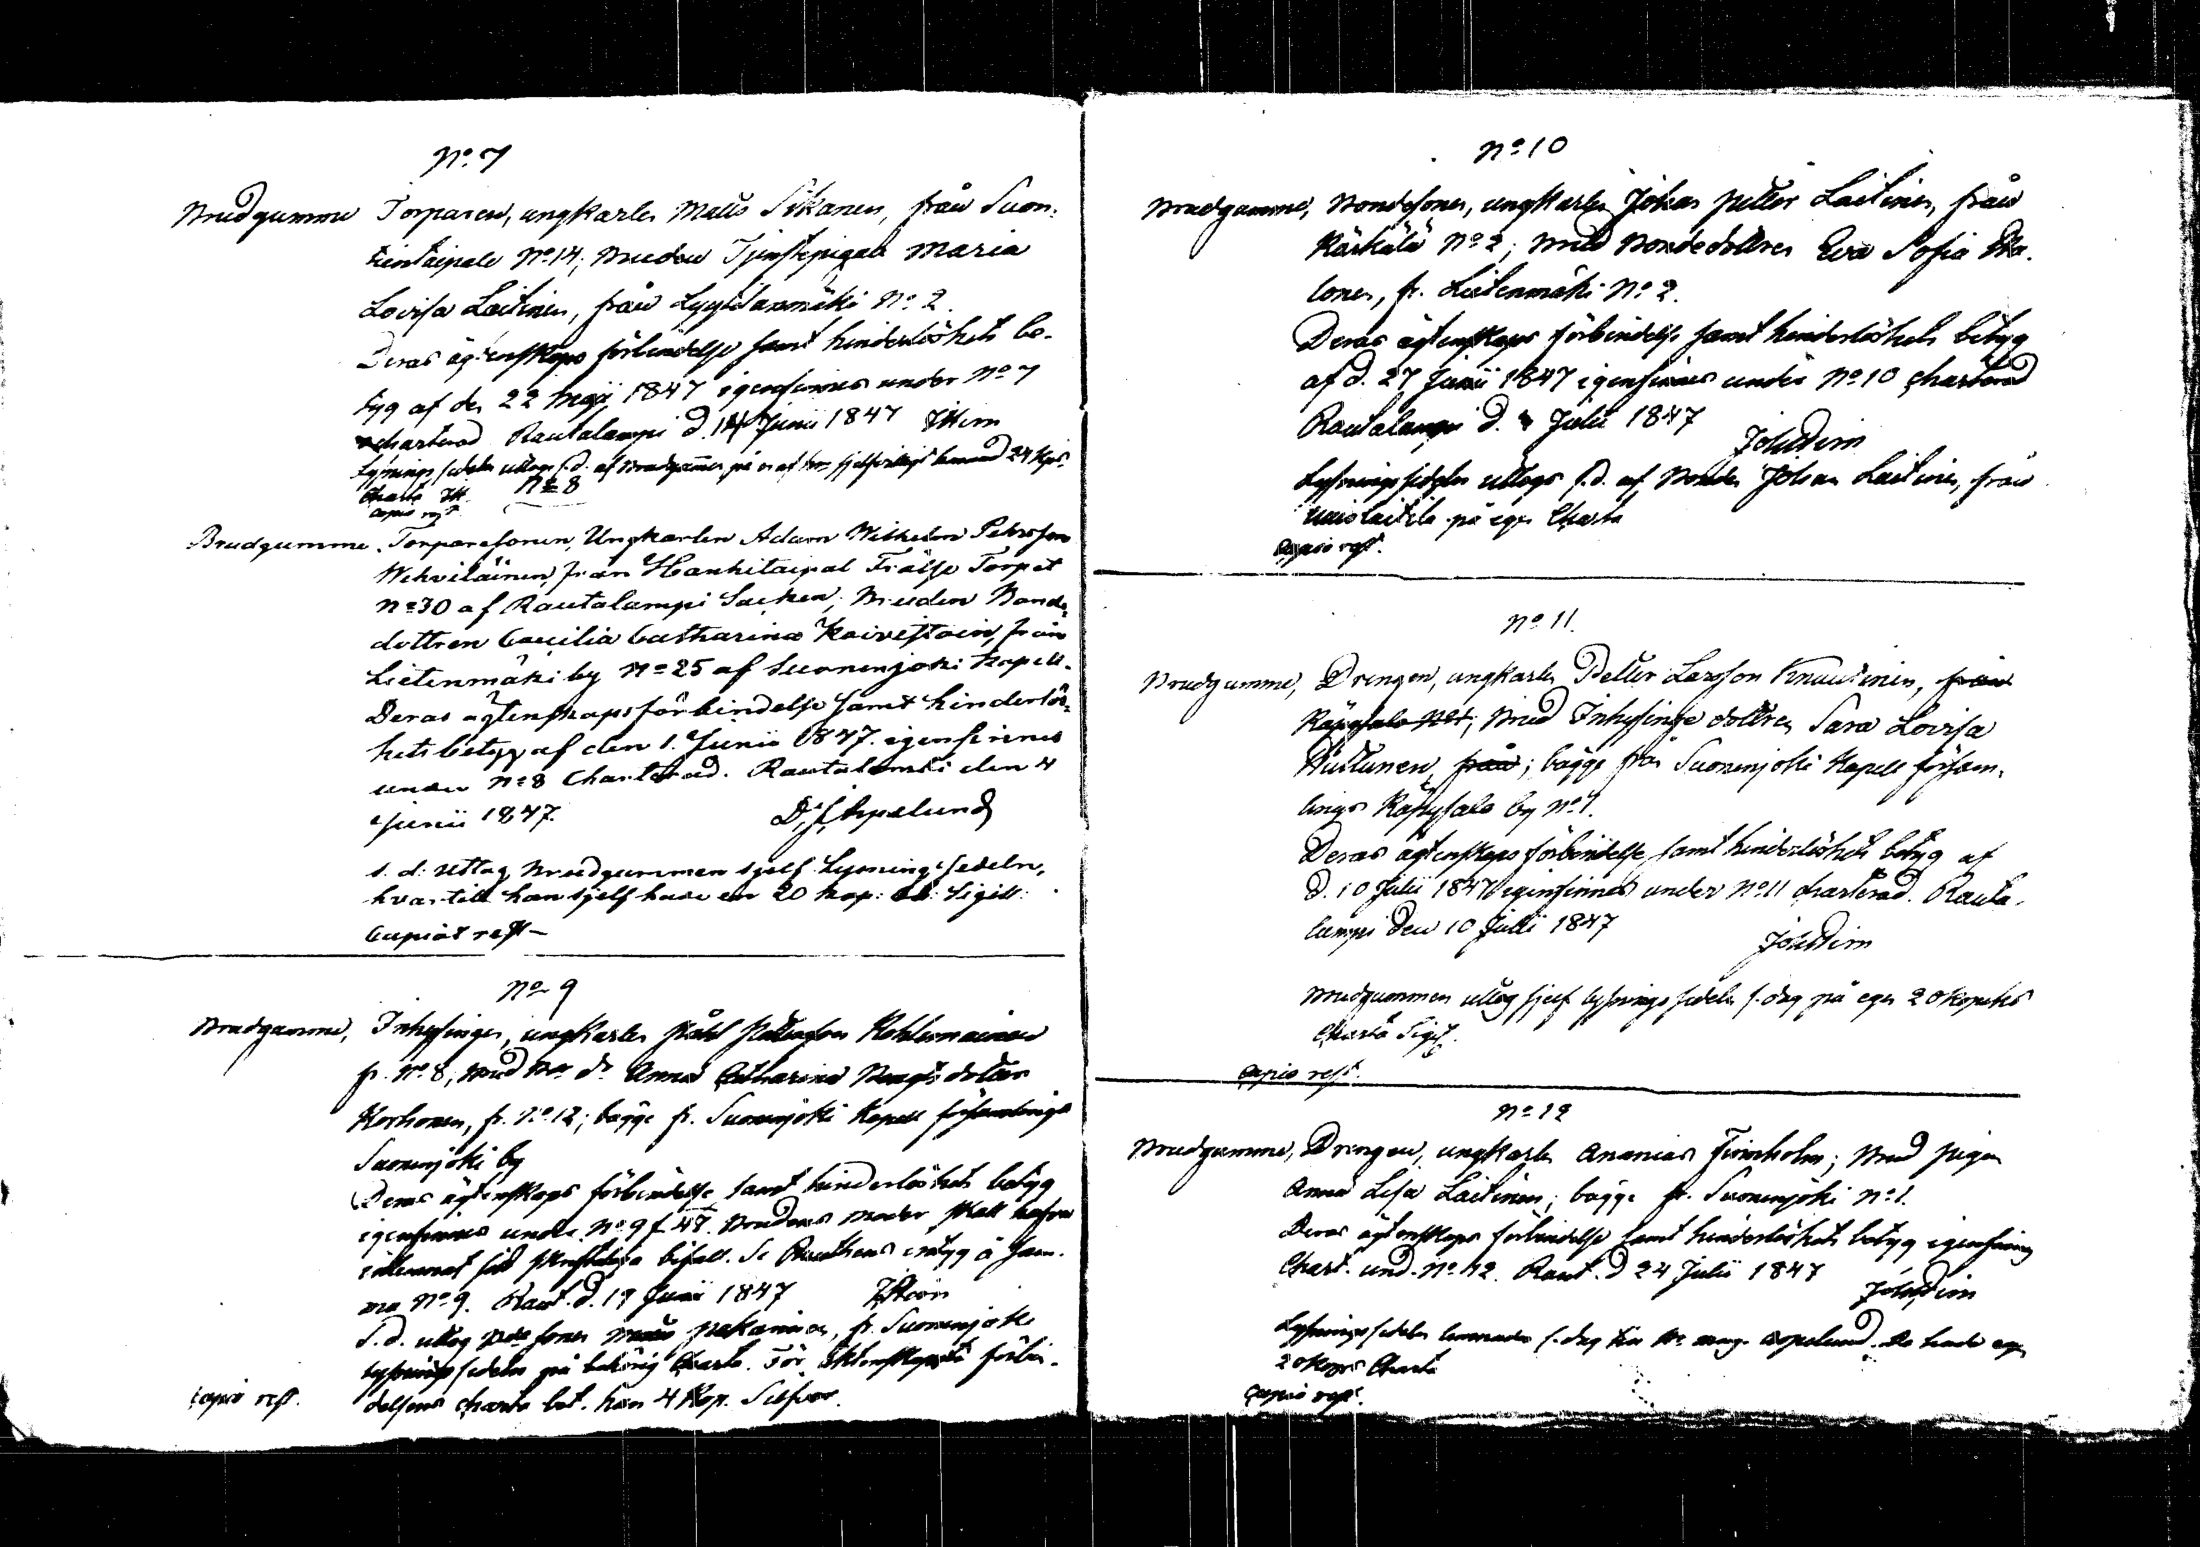 No. 7
Brudgumme Torparen, ungkarlen Matts Sikanen, från Suon-
tientaipale No. 14; Bruden Tjenstepigan Maria
Lovisa Laitinen, från Lyytilänmäki No. 2.
Deras ägtenskaps förbindelse samt hinderlöshets be-
tyg af den 22 Maji 1847 igenfinnes under No 7
charterad Rautalampi d. 14 Junii 1847
Lysnings sedeln uttogs s.d. af Brudgummen på 24 Kop.
Charta
copia reqt.
No 8
Brudgumme. Torparesonen, Ungkarlen Adam Wilhelm Petersson
Wehviläinen, från Hankitaipal Frälse Torpet
No 30 af Rautalampi Socken; Bruden Bonde-
dottren Caecilia Catharina Koivistoin, från
Lietenmäki by No 25 af Suonenjoki Kapell.
Deras ägtenskapsförbindelse samt hinderlös-
hets betyg af den 1. Junii 1847. igenfinnes
under No 8 Charterad. Rautalampi den 4
Junii 1847. D. J. Aspelund
s. d. uttog Brudgummen sjelf Lysnings sedeln,
hvartill han sjelf hade en 20 kop: Sigill:
Cupiat reqt
No 9
Brudgumme, Inhysingen, ungkarlen Påhl Kohlemainen
fr. No. 8, Brud Anna Catharina Bengts dotter
Korhonen, fr. No. 12; bägge fr. Suonenjoki Kapell församlings
Suonenjoki by
Deras ägtenskaps förbindelse samt hinderlöshets betyg
igenfinnes under No. 9 f. 47. Brudens moder skall hafva
lemnat sitt skriftliga bifall. Se intyg å sam-
ma No. 9. Raut. d. 19 Junii 1847
S.d. uttog Pekarinen, fr. Suonenjoki
lysnings sedeln på behörig Charta. För äktenskaps förbin-
delsens charta bet. han 4 Kop. Silfver.
copia reqt.
No 10
Brudgumme, Bondesonen, ungkarlen Johan Petter Laitinen, från
Kärkälä No 2; Brud Bondedottren Eva Sofia
lonen, fr. Lietenmäki No. 2.
Deras ägtenskaps förbindelse samt hinderlöshets betyg
af d. 27 Junii 1847 igenfinnes under No 10 charterad
Rautalampi d. Julii 1847
Lysnings sedeln uttogs s.d. af Bonden Johan Laitinen, från
på egen Charta
Copia reqt.
No 11.
Brudgumme, Drengen, ungkarlen Petter Larsson Knuutinen, från
Käpysalo No 1; Brud Inhysinge dottren Sara Lovisa
Huttunen, från; bägge från Suonenjoki Kapell försam-
lings Käpysalo by No. 1.
Deras ägtenskaps förbindelse samt hinderlöshets betyg af
d. 10 Julii 1847 igenfinnes under No. 11 charterad. Rauta-
lampi den 10 Julii 1847
Brudgummen uttog sjelf lysnings sedeln s. dag på egen 20 kopeks
Charta Sigil.
Copia reqt.
No 12
Brudgumme, Drengen, ungkarlen Ananias Firinholm; Brud pigan
Anna Lisa Laitinen; bägge fr. Suonenjoki No. 1.
Deras ägtenskaps förbindelse samt hinderlöshets betyg igenfinnes
Chart. und. No. 12. Raut. d 24 Julii 1847
Lysnings sedeln lemnades s. dag Aspelund. De hade egen
20 Kops Charta
Copia reqt.